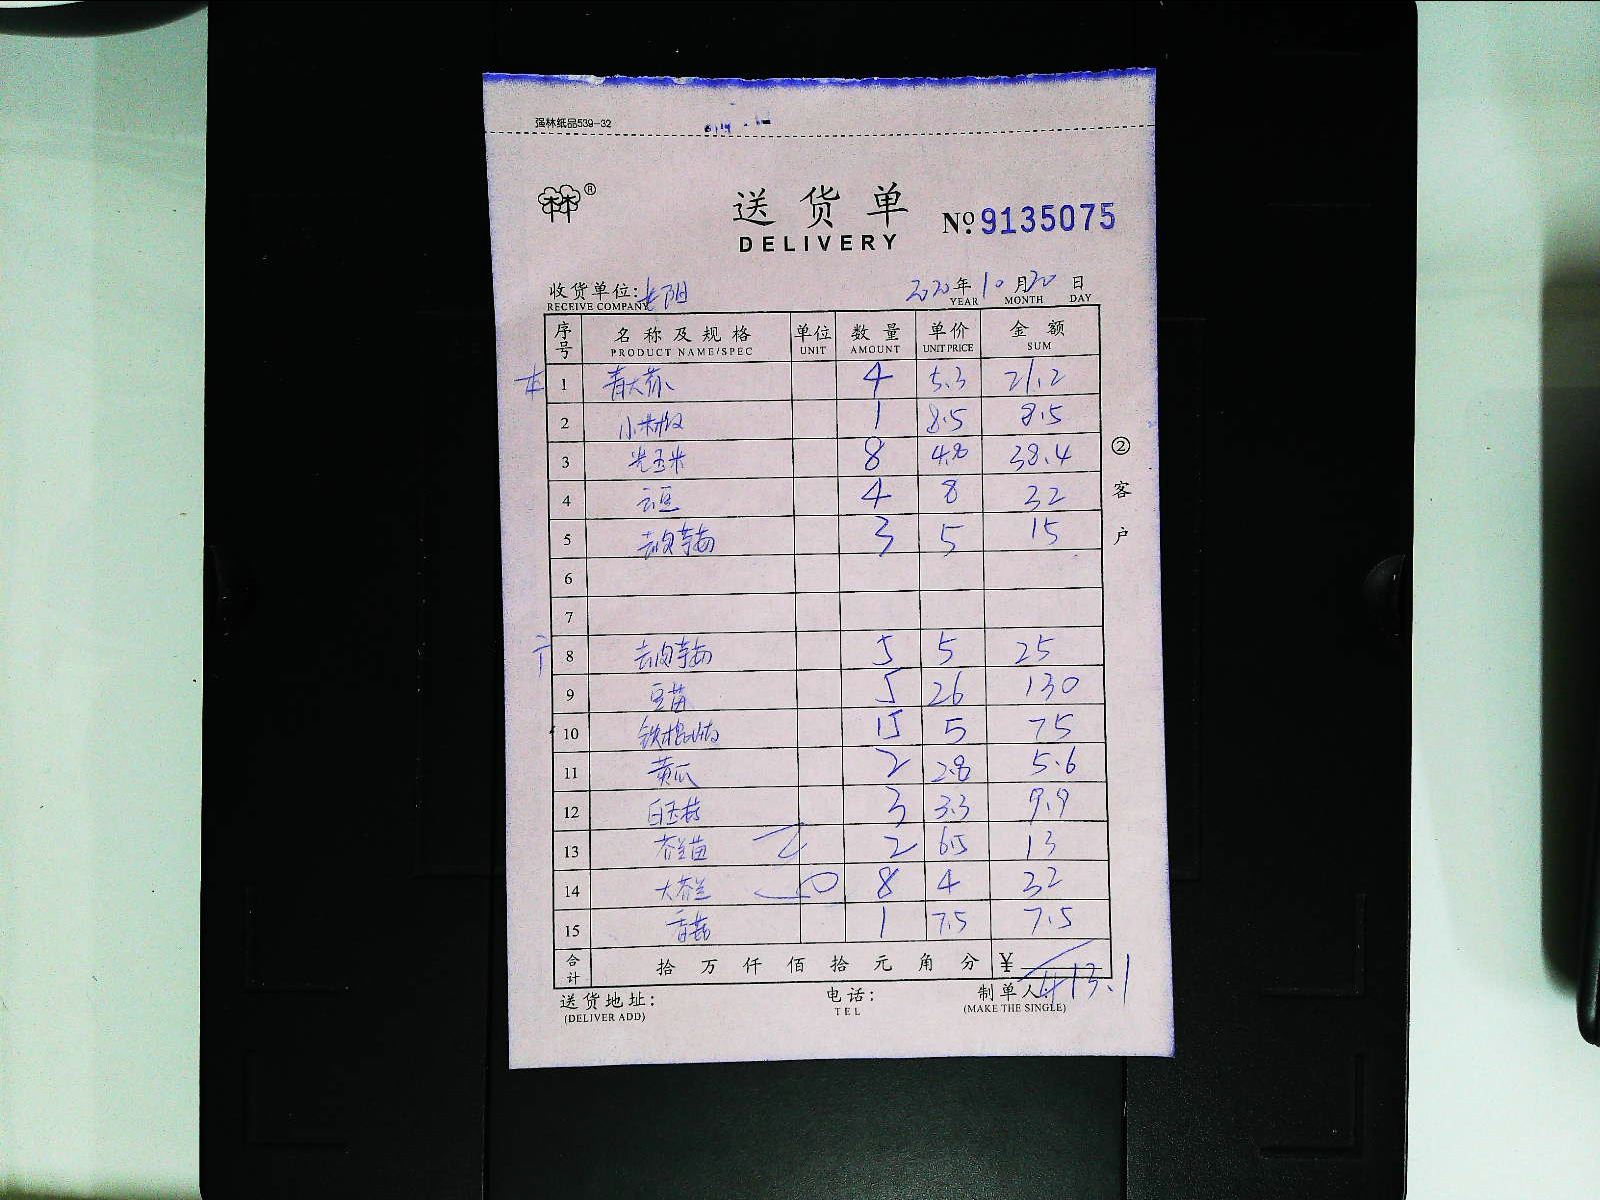 强林纸品539-32
林林®
送货单 №9135075
DELIVERY
收货单位: 2020年10月20日
RECEIVE COMPANY YEAR MONTH DAY
序号 名称及规格 单位 数量 单价 金额
PRODUCT NAME/SPEC UNIT AMOUNT UNIT PRICE SUM
本 1 青大 4 5.3 21.2
2 小米椒 1 8.5 8.5
3 光玉米 8 4.8 38.4
4 云豆 4 8 32
5 去皮 3 5 15
6
7
8 去皮 5 5 25
9 豆苗 5 26 130
10 铁棍 15 5 75
11 黄瓜 2 2.8 5.6
12 白玉菇 3 3.3 9.9
13 芥兰苗 2 6.5 13
14 大芥兰 8 4 32
15 香菇 1 7.5 7.5
合计 拾万仟佰拾元角分 ¥ 413.1
②客户
送货地址: 电话: 制单人
(DELIVER ADD) TEL (MAKE THE SINGLE)